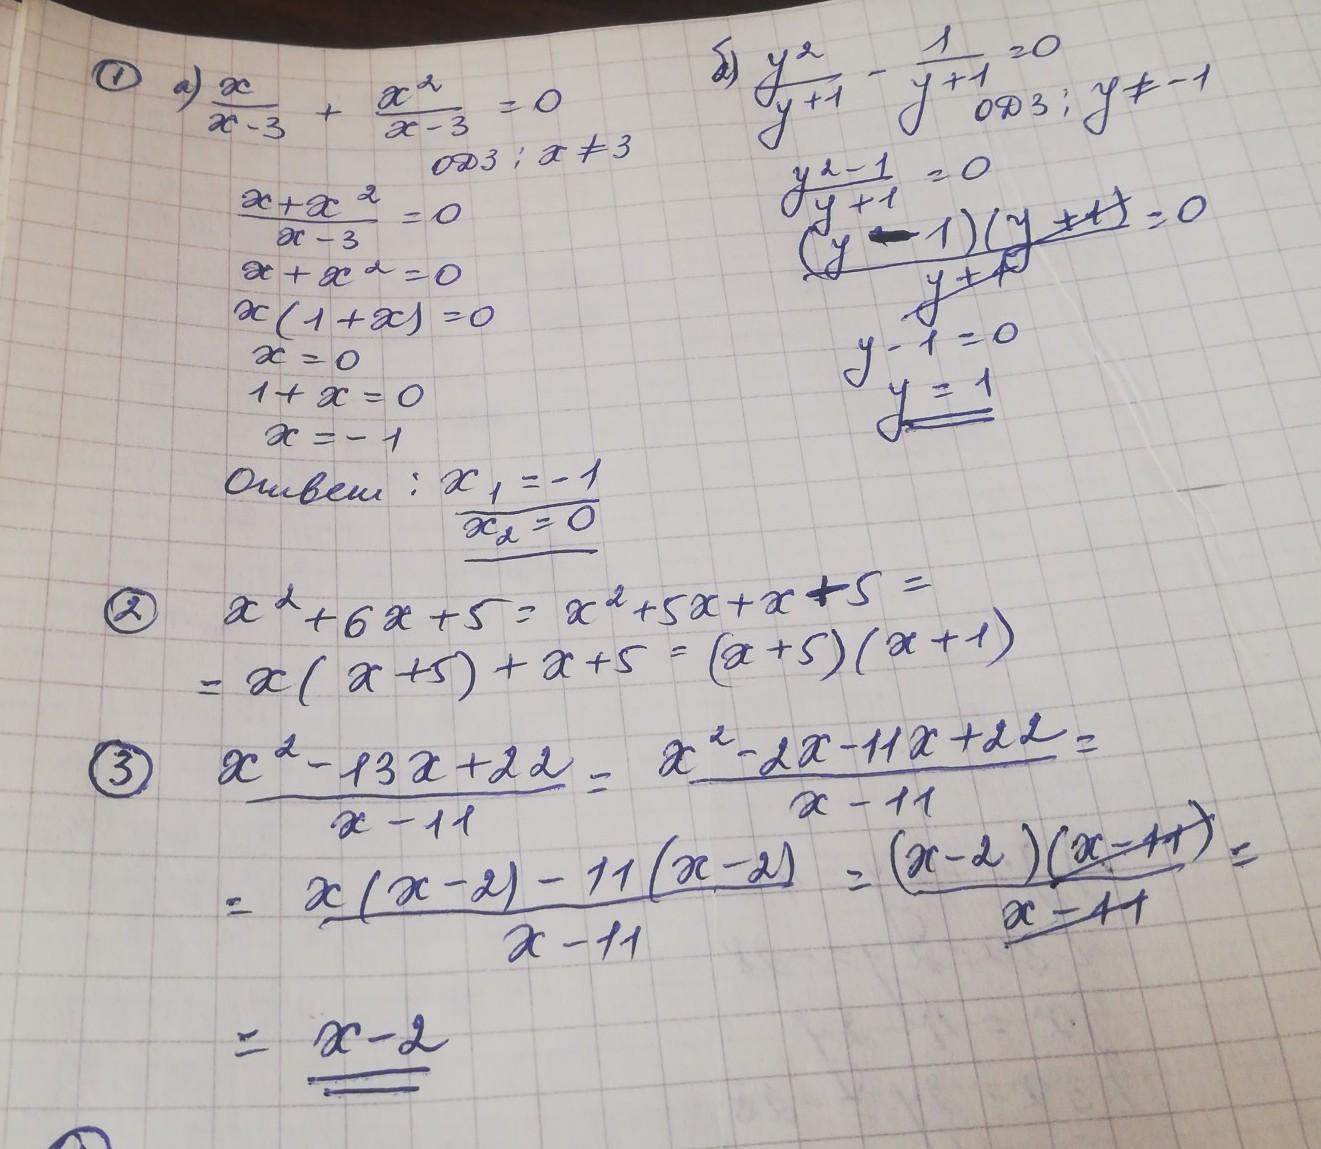 ① а) x/(x-3) + x²/(x-3) = 0
ОДЗ: x ≠ 3
(x+x²)/(x-3) = 0
x + x² = 0
x(1+x) = 0
x = 0
1 + x = 0
x = -1
Ответ: x₁ = -1
x₂ = 0
б) y²/(y+1) - 1/(y+1) = 0
ОДЗ: y ≠ -1
(y²-1)/(y+1) = 0
(y-1)(y+1)/(y+1) = 0
y - 1 = 0
y = 1
② x² + 6x + 5 = x² + 5x + x + 5 =
= x(x+5) + x + 5 = (x+5)(x+1)
③ (x² - 13x + 22)/(x - 11) = (x² - 2x - 11x + 22)/(x - 11) =
= (x(x-2) - 11(x-2))/(x - 11) = (x-2)(x-11)/(x-11) =
= x - 2